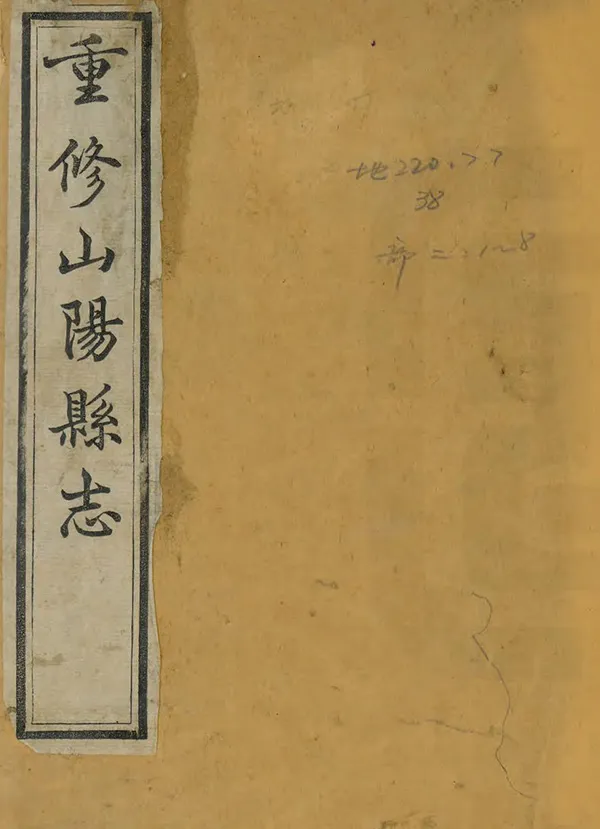 重修山陽縣志
地220.77
38
部二:1~8